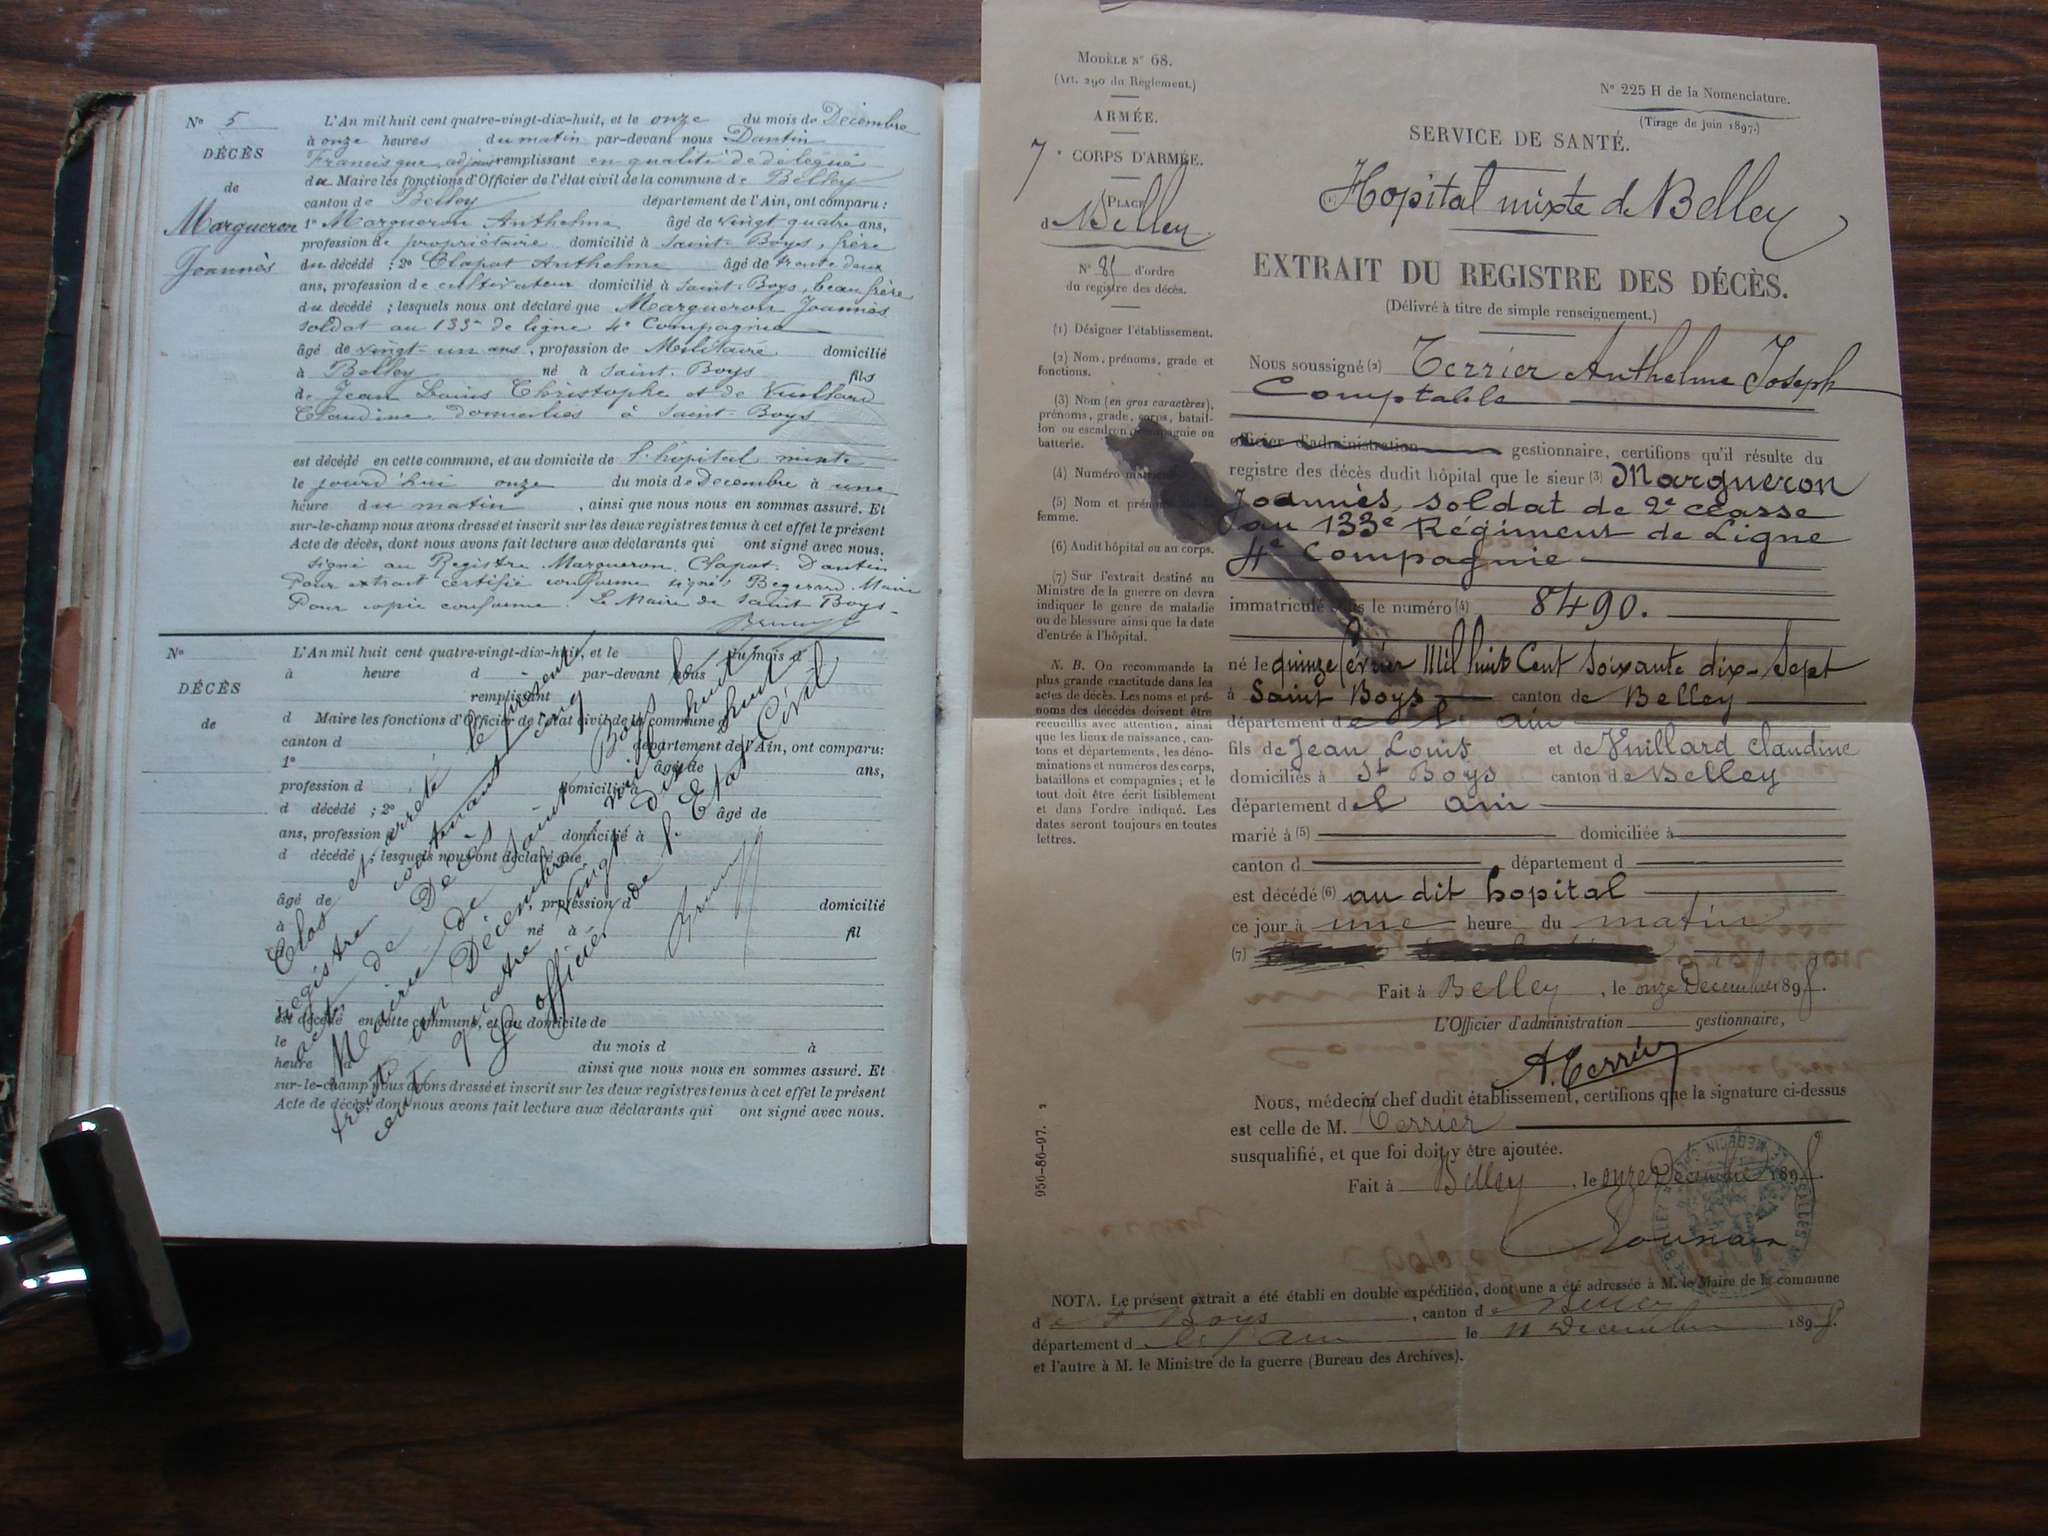 N° 5
DÉCÈS
de
Margueron
Joannès
L'An mil huit cent quatre-vingt-dix-huit, et le onze du mois de Décembre
à onze heures du matin par-devant nous Dantin
Francisque, adjoint remplissant en qualité de délégué
du Maire les fonctions d'Officier de l'état civil de la commune de Belley
canton de Belley département de l'Ain, ont comparu :
1° Margueron Anthelme âgé de vingt quatre ans,
profession de propriétaire domicilié à Saint-Boys, frère
du décédé ; 2° Clapot Anthelme âgé de trente deux
ans, profession de cultivateur domicilié à Saint-Boys, beau frère
du décédé ; lesquels nous ont déclaré que Margueron Joannès
soldat au 133e de ligne 4e Compagnie
âgé de vingt-un ans, profession de Militaire domicilié
à Belley né à Saint-Boys fils
de Jean Louis Christophe et de Vuillard
Claudine domiciliés à Saint-Boys
est décédé en cette commune, et au domicile de l'hôpital mixte
le jourd'hui onze du mois de Décembre à une
heure du matin, ainsi que nous nous en sommes assuré. Et
sur-le-champ nous avons dressé et inscrit sur les deux registres tenus à cet effet le présent
Acte de décès, dont nous avons fait lecture aux déclarants qui ont signé avec nous.
Signé au Registre Margueron, Clapot, Dantin
Pour extrait certifié conforme signé Maire
Pour copie conforme. Le Maire de Saint Boys
N°
DÉCÈS
de
L'An mil huit cent quatre-vingt-dix-huit, et le du mois d
à heure d par-devant nous
remplissant
d Maire les fonctions d'Officier de l'état civil de la commune d
canton d département de l'Ain, ont comparu :
1° âgé de ans,
profession d domicilié à
d décédé ; 2° âgé de
ans, profession d domicilié à
d décédé ; lesquels nous ont déclaré que
âgé de profession d domicilié
à né à fil
est décédé en cette commune, et au domicile de
le du mois d à
heure ainsi que nous nous en sommes assuré. Et
sur-le-champ nous avons dressé et inscrit sur les deux registres tenus à cet effet le présent
Acte de décès, dont nous avons fait lecture aux déclarants qui ont signé avec nous.
Clos et arrêté le présent
registre contenant cinq
actes de Décès
Mairie de Saint Boys le
trente un Décembre mil huit
cent quatre vingt dix huit
L'officier de l'Etat Civil
MODÈLE N° 68.
(Art. 290 du Règlement.)
ARMÉE.
7e CORPS D'ARMÉE.
PLACE
d Belley
N° 85 d'ordre
du registre des décès.
(1) Désigner l'établissement.
(2) Nom, prénoms, grade et
fonctions.
(3) Nom (en gros caractères),
prénoms, grade, corps, batail-
lon ou escadron, compagnie ou
batterie.
(4) Numéro matricule.
(5) Nom et prénoms
femme.
(6) Audit hôpital ou au corps.
(7) Sur l'extrait destiné au
Ministre de la guerre on devra
indiquer le genre de maladie
ou de blessure ainsi que la date
d'entrée à l'hôpital.
N. B. On recommande la
plus grande exactitude dans les
actes de décès. Les noms et pré-
noms des décédés doivent être
recueillis avec attention, ainsi
que les lieux de naissance, can-
tons et départements, les déno-
minations et numéros des corps,
bataillons et compagnies ; et le
tout doit être écrit lisiblement
et dans l'ordre indiqué. Les
dates seront toujours en toutes
lettres.
956-86-97.
N° 225 H de la Nomenclature.
(Tirage de juin 1897.)
SERVICE DE SANTÉ.
(1) Hopital mixte de Belley
EXTRAIT DU REGISTRE DES DÉCÈS.
(Délivré à titre de simple renseignement.)
Nous soussigné (2) Terrier Anthelme Joseph
Comptable
officier d'administration gestionnaire, certifions qu'il résulte du
registre des décès dudit hôpital que le sieur (3) Margueron
Joannès, soldat de 2e classe
au 133e Régiment de Ligne
4e Compagnie
immatriculé sous le numéro (4) 8490.
né le quinze février Mil huit Cent Soixante dix-Sept
à Saint Boys canton de Belley
département de l'ain
fils de Jean Louis et de Vuillard Claudine
domiciliés à St Boys canton de Belley
département de l'ain
marié à (5) domiciliée à
canton d département d
est décédé (6) au dit hopital
ce jour à une heure du matin
(7)
Fait à Belley, le onze Decembre 1898.
L'Officier d'administration gestionnaire,
A. Terrier
Nous, médecin chef dudit établissement, certifions que la signature ci-dessus
est celle de M. Terrier
susqualifié, et que foi doit y être ajoutée.
Fait à Belley, le onze Decembre 1898.
NOTA. Le présent extrait a été établi en double expédition, dont une a été adressée à M. le Maire de la commune
de St Boys, canton de Belley
département de l'ain le 11 Decembre 1898.
et l'autre à M. le Ministre de la guerre (Bureau des Archives).